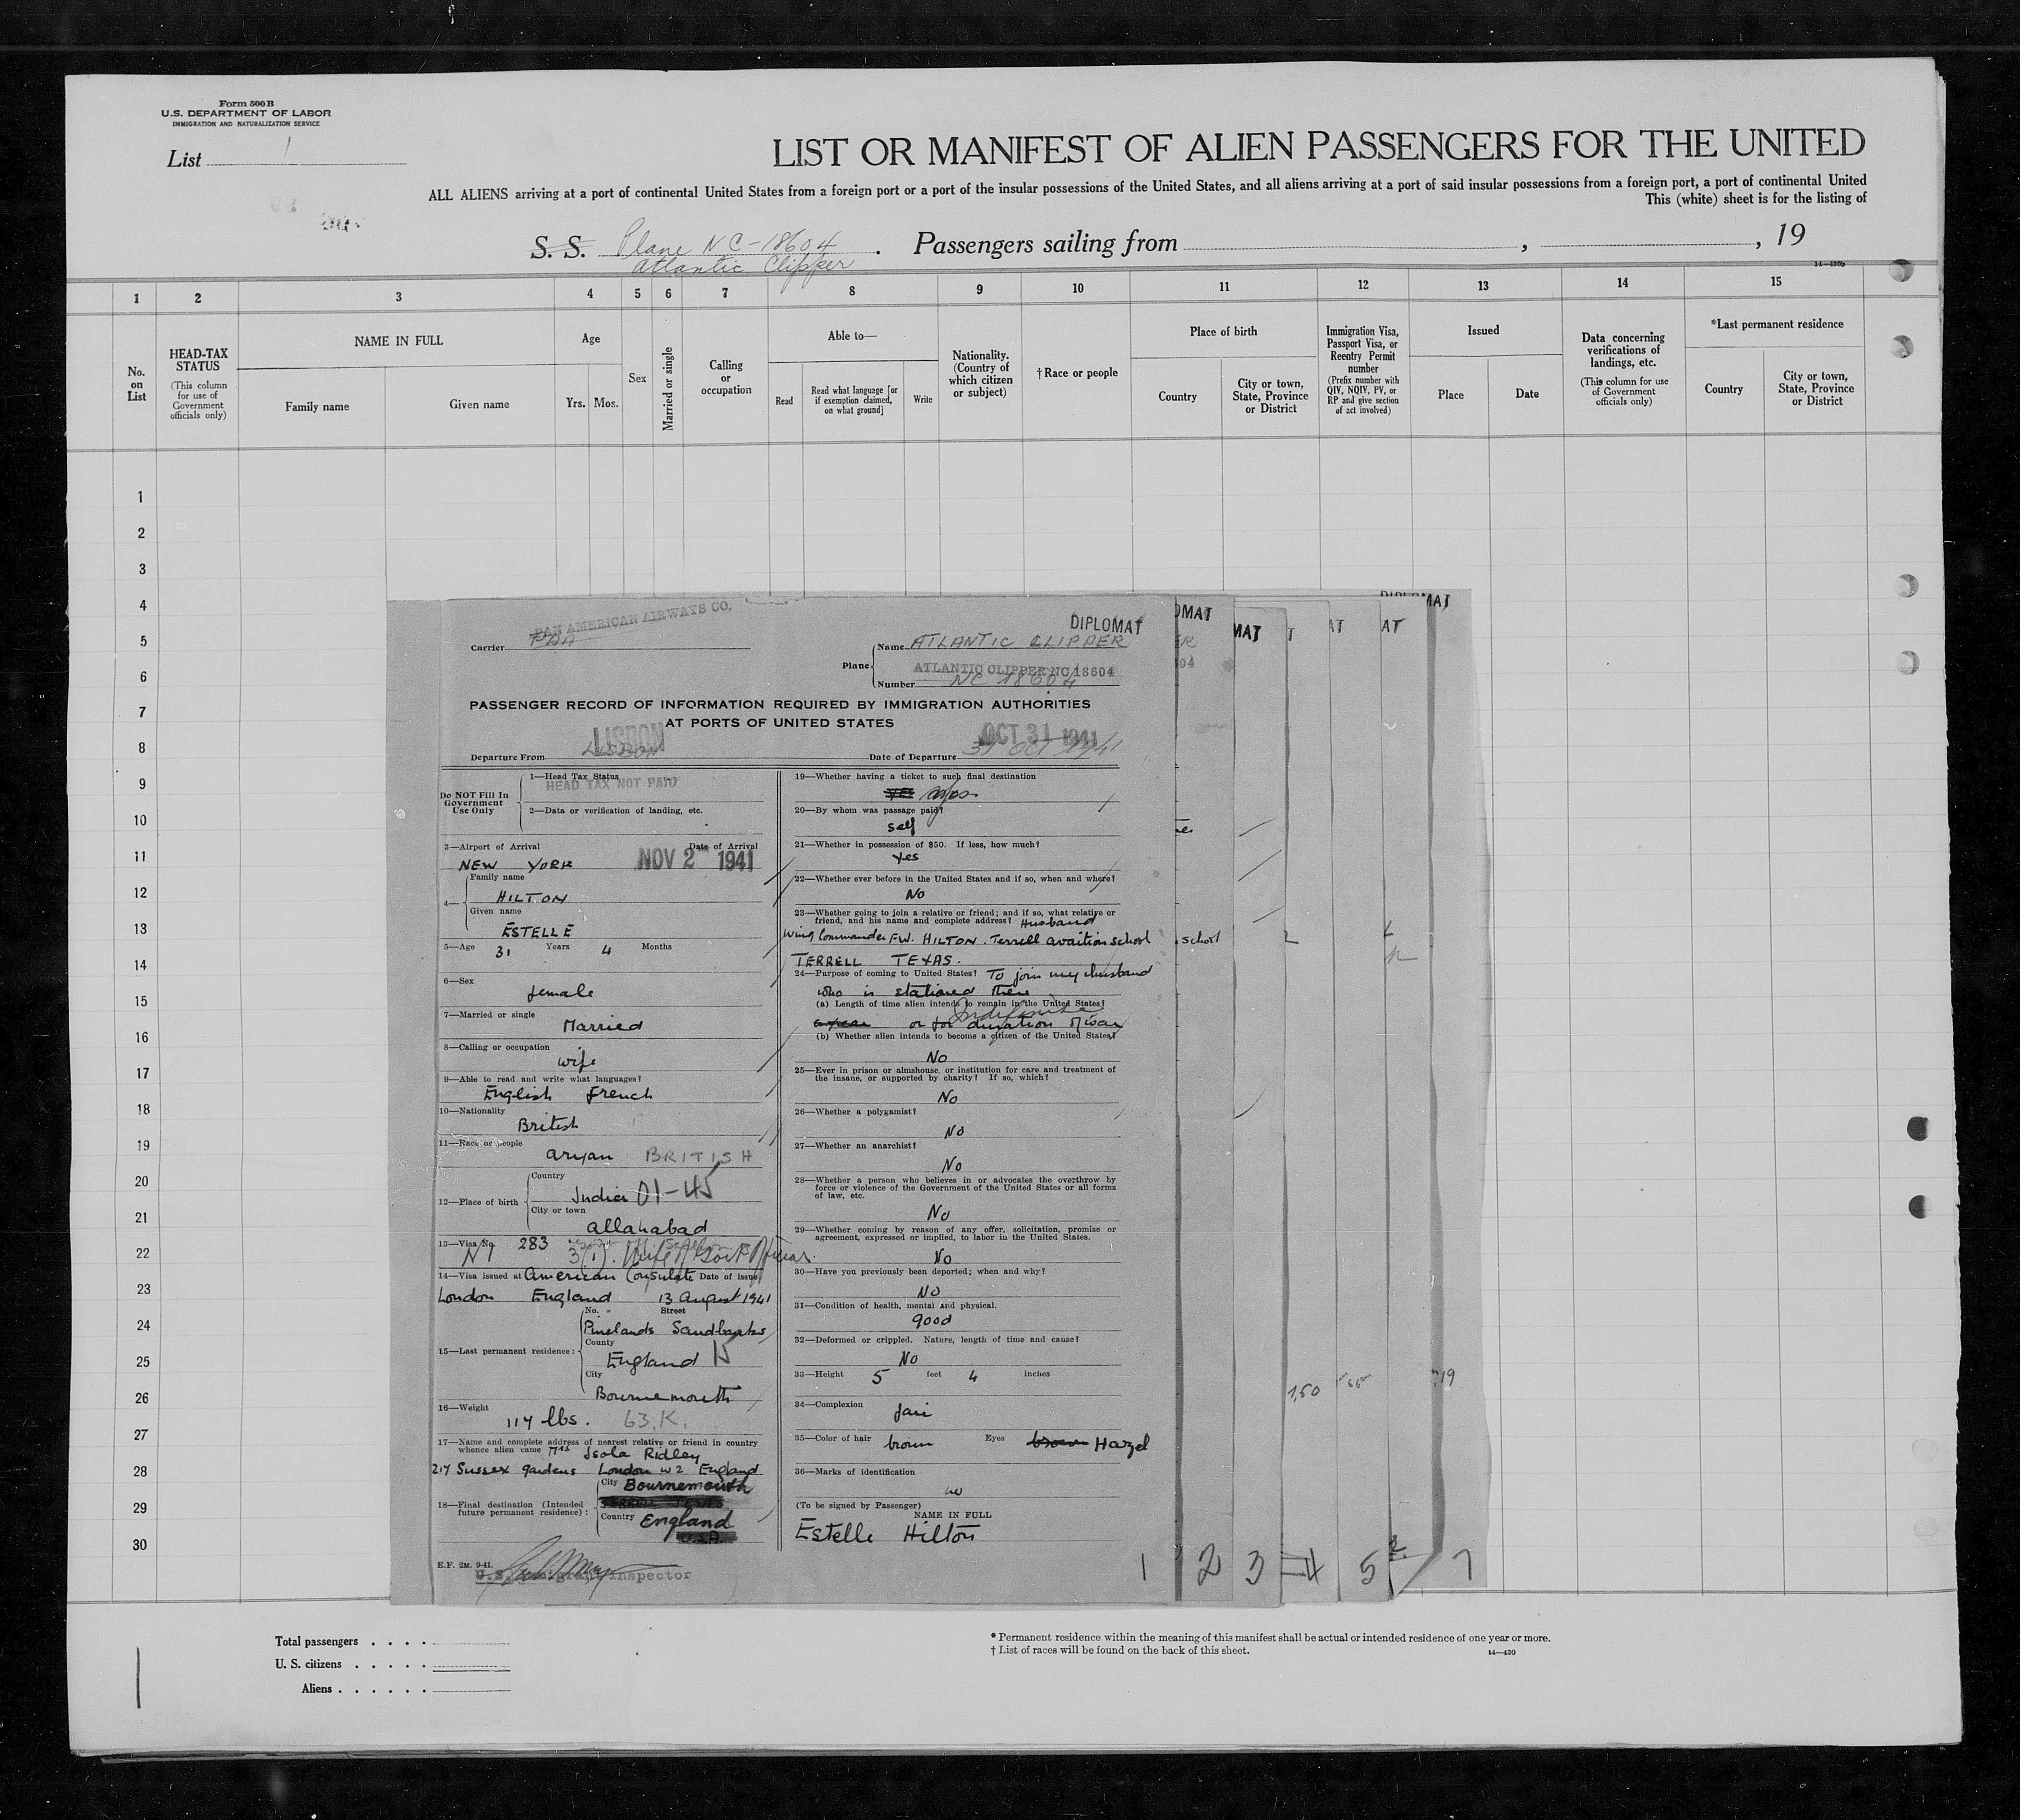 Form 500 B
U.S. DEPARTMENT OF LABOR
IMMIGRATION AND NATURALIZATION SERVICE
List 1
LIST OR MANIFEST OF ALIEN PASSENGERS FOR THE UNITED
ALL ALIENS arriving at a port of continental United States from a foreign port or a port of the insular possessions of the United States, and all aliens arriving at a port of said insular possessions from a foreign port, a port of continental United
This (white) sheet is for the listing of
S. S. Plane NC-18604 . Passengers sailing from , , 19
Atlantic Clipper
1 2 3 4 5 6 7 8 9 10 11 12 13 14 15
No. on List
HEAD-TAX STATUS
(This column for use of Government officials only)
NAME IN FULL
Family name
Given name
Age
Yrs. Mos.
Sex
Married or single
Calling or occupation
Able to—
Read
Read what language [or if exemption claimed, on what ground]
Write
Nationality. (Country of which citizen or subject)
†Race or people
Place of birth
Country
City or town, State, Province or District
Immigration Visa, Passport Visa, or Reentry Permit number
(Prefix number with QIV, NQIV, PV, or RP and give section of act involved)
Issued
Place
Date
Data concerning verifications of landings, etc.
(This column for use of Government officials only)
*Last permanent residence
Country
City or town, State, Province or District
1
2
3
4
5
6
7
8
9
10
11
12
13
14
15
16
17
18
19
20
21
22
23
24
25
26
27
28
29
30
PAN AMERICAN AIRWAYS CO.
DIPLOMAT
Carrier PAA
Plane Name ATLANTIC CLIPPER
ATLANTIC CLIPPER NC 18604
Number NC 18604
PASSENGER RECORD OF INFORMATION REQUIRED BY IMMIGRATION AUTHORITIES
AT PORTS OF UNITED STATES
LISBON
OCT 31 1941
Departure From LISBON Date of Departure 31 OCT 1941
Do NOT Fill In Government Use Only
1—Head Tax Status
HEAD TAX NOT PAID
2—Data or verification of landing, etc.
3—Airport of Arrival Date of Arrival
NEW YORK NOV 2 1941
4— Family name
HILTON
Given name
ESTELLE
5—Age 31 Years 4 Months
6—Sex
female
7—Married or single
Married
8—Calling or occupation
wife
9—Able to read and write what languages?
English French
10—Nationality
British
11—Race or people
aryan BRITISH
12—Place of birth
Country
India 01-45
City or town
allahabad
13—Visa No. 283
3(1). Wife of Gov't Official.
14—Visa issued at American Consulate Date of issue
London England 13 August 1941
No. Street
Pinelands Sandbanks
15—Last permanent residence:
County
England 15
City
Bournemouth
16—Weight
114 lbs. 63.K.
17—Name and complete address of nearest relative or friend in country
whence alien came Mrs Isola Ridley
217 Sussex gardens London W2 England
18—Final destination (Intended future permanent residence):
City Bournemouth
TERRELL TEXAS
Country England
U.S.A.
E.F. 2M. 9-41.
U.S. Immigrant Inspector
19—Whether having a ticket to such final destination
yes
20—By whom was passage paid?
self
21—Whether in possession of $50. If less, how much?
yes
22—Whether ever before in the United States and if so, when and where?
No
23—Whether going to join a relative or friend; and if so, what relative or
friend, and his name and complete address? Husband
Wing Commander F.W. HILTON. Terrell avaition school
TERRELL TEXAS.
24—Purpose of coming to United States? To join my husband
who is stationed there
(a) Length of time alien intends to remain in the United States?
Indefinite
a year or for duration of war
(b) Whether alien intends to become a citizen of the United States?
No
25—Ever in prison or almshouse, or institution for care and treatment of
the insane, or supported by charity? If so, which?
No
26—Whether a polygamist?
No
27—Whether an anarchist?
No
28—Whether a person who believes in or advocates the overthrow by
force or violence of the Government of the United States or all forms
of law, etc.
No
29—Whether coming by reason of any offer, solicitation, promise or
agreement, expressed or implied, to labor in the United States.
No
30—Have you previously been deported; when and why?
No
31—Condition of health, mental and physical.
good
32—Deformed or crippled. Nature, length of time and cause?
No
33—Height 5 feet 4 inches
34—Complexion
fair
35—Color of hair brown Eyes brown Hazel
36—Marks of identification
(To be signed by Passenger)
NAME IN FULL
Estelle Hilton
OMAT
MAT
T
AT
AT
school
1,50
19
1 2 3 4 5 7
Total passengers . . . .
U. S. citizens . . . . .
Aliens . . . . . .
* Permanent residence within the meaning of this manifest shall be actual or intended residence of one year or more.
† List of races will be found on the back of this sheet.
14—430